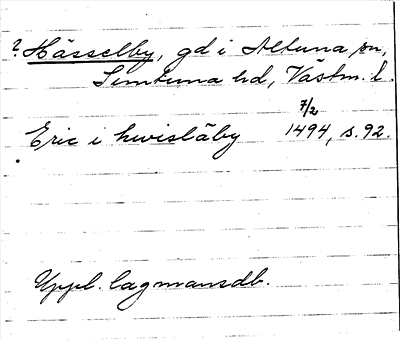 ? Hässelby, gd i Altuna sn,
Simtuna hd, Västm. l.
Eric i hwisläby 7/2 1494, s. 92.
Uppl. lagmansdb.